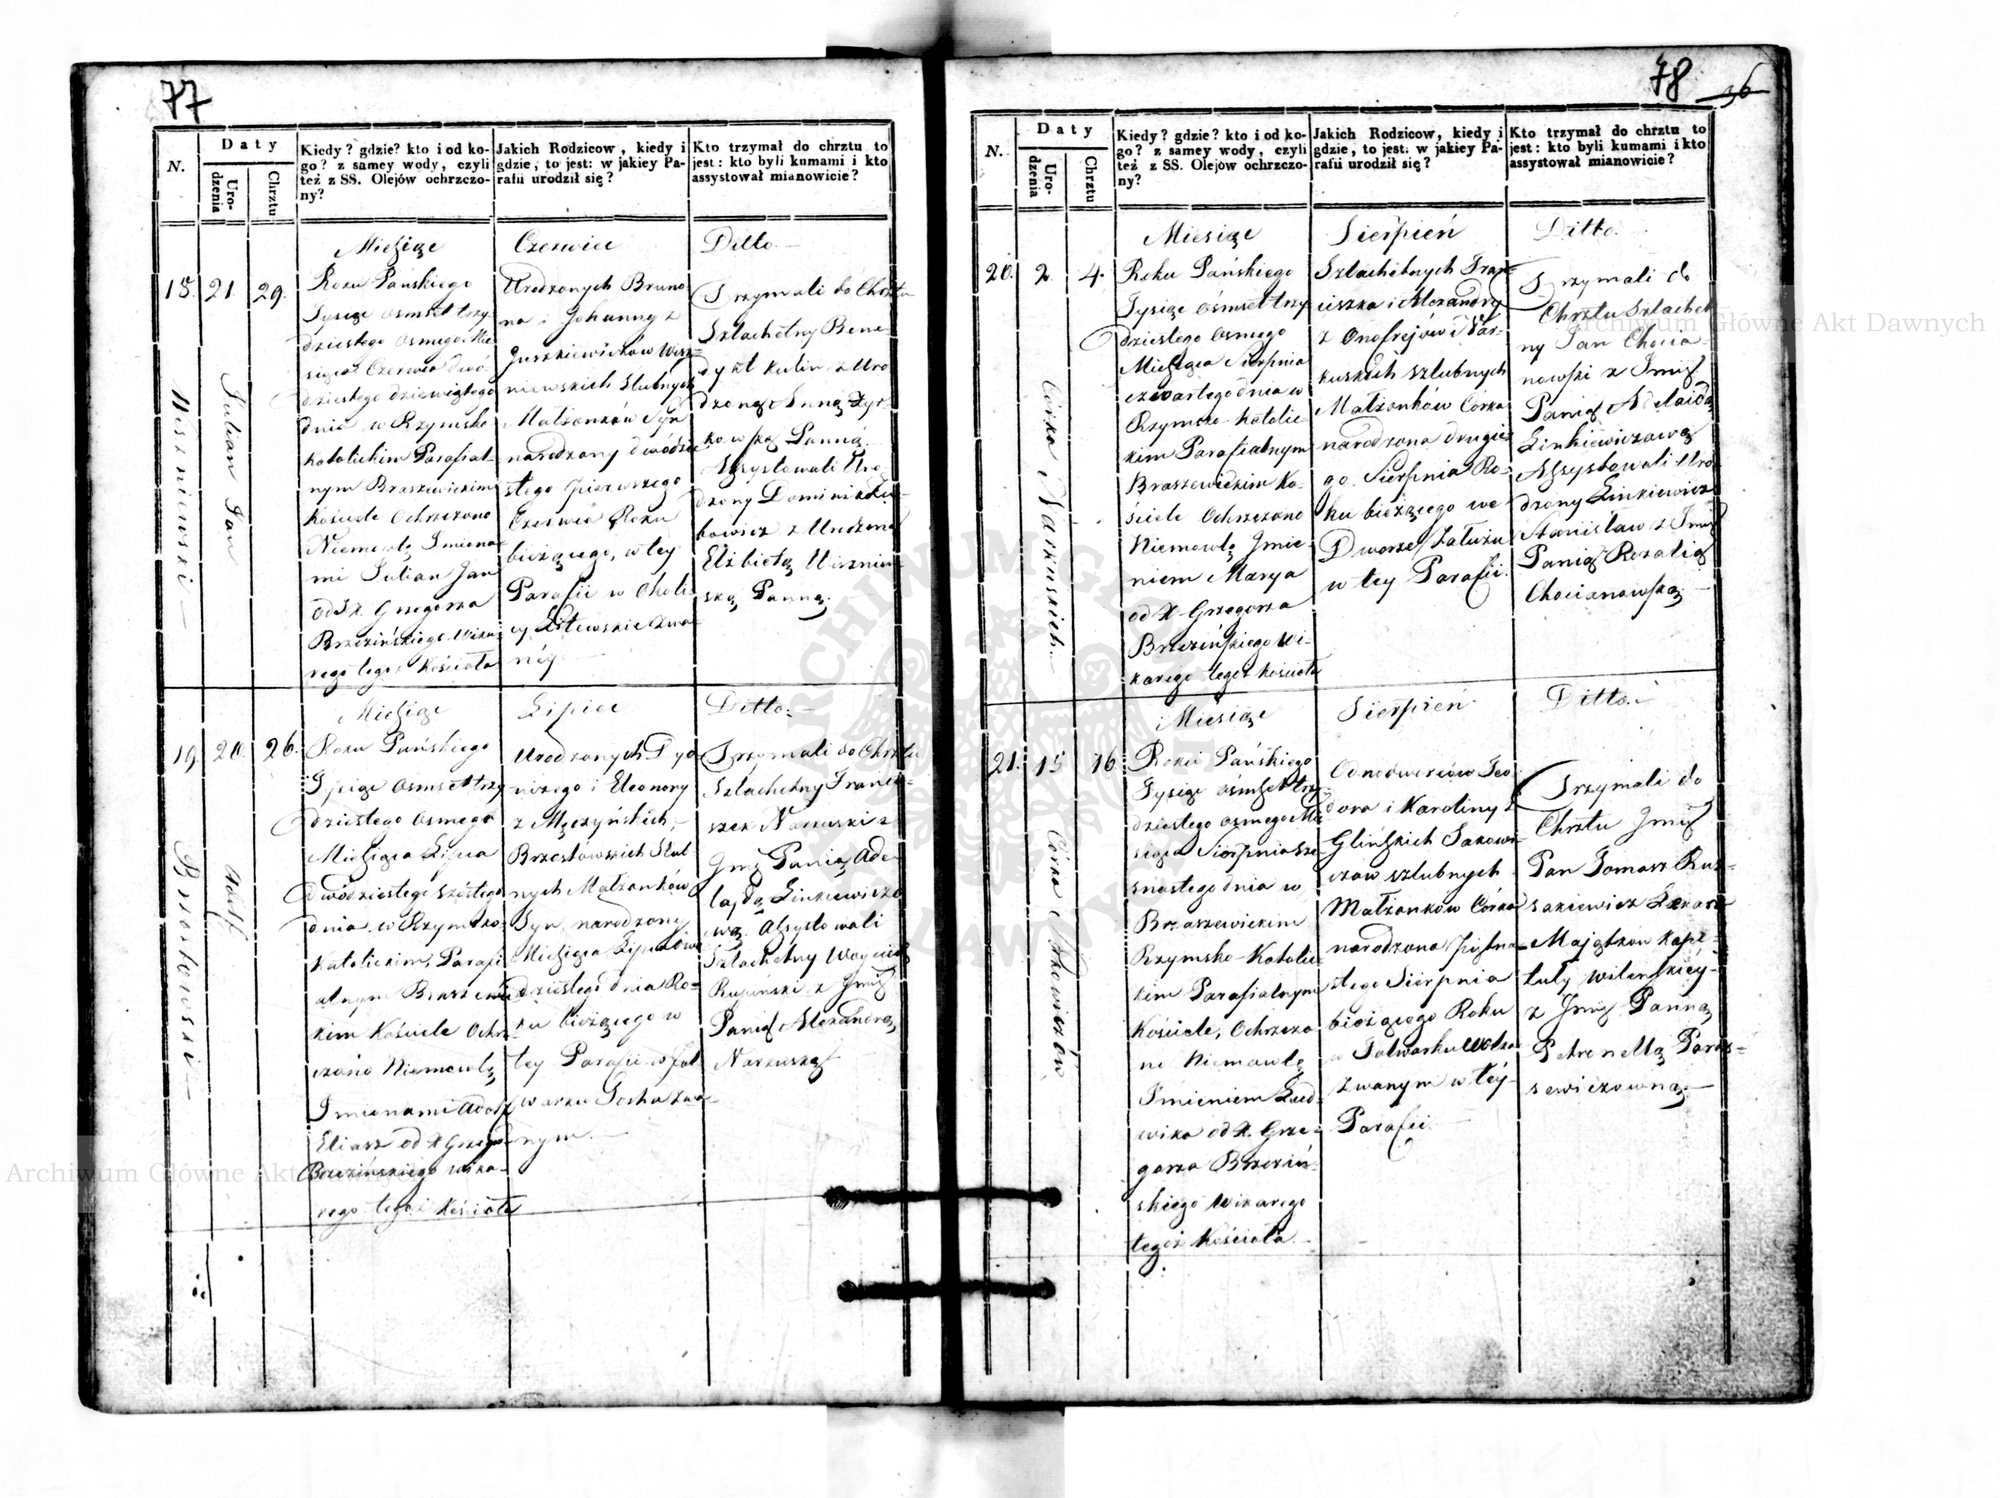 77
N.
Daty
Uro-
dzenia
Chrztu
Kiedy? gdzie? kto i od ko-
go? z samey wody, czyli
też z SS. Olejów ochrzczo-
ny?
Jakich Rodzicow, kiedy i
gdzie, to jest: w jakiey Pa-
rafii urodził się?
Kto trzymał do chrztu to
jest: kto byli kumami i kto
assystował mianowicie?
Miesiąc
Czerwiec
Ditto.
18. 21. 29.
Wiszniewski
Julian Jan
Roku Pańskiego
Tysiąc osmset trzy-
dziestego osmego Mie
siąca Czerwca dwó-
dziestego dziewiątego
dnia w Rzymsko
Katolickim Parafial-
nym Braszewickim
Kościele Ochrzczono
Niemowle Imiona-
mi Julian Jan
od X. Grzegorza
Brzezińskiego Wika-
rego tegoż Kościoła
Urodzonych Bruno
na i Johanny z
Juszkiewiczów Wisz-
niewskich Ślubnych
Małżonków Syn
narodzony dwódzie
stego pierwszego
Czerwca Roku
bieżącego, w tey
Parafii w
Litewskie zwa-
néy
Trzymali do Chrztu
Szlachetny Bene-
dykt Kulin z Uro
dzoną Anną
Panną.
Assystowali Uro-
dzony Dominik
z Urodzoną
Elżbietą Wiszniew-
ską Panną.
Miesiąc
Lipiec
Ditto.
19. 20. 26.
Brzostowski
Adolf
Roku Pańskiego
Tysiąc osmset trzy
dziestego osmego
Miesiąca Lipca
Dwódziestego szóstego
dnia w Rzymsko
Katolickim, Parafi
alnym Braszewic
kim Kościele Ochrz-
czono Niemowlę
Imionami Adolf
Eliasz od X Grzego
Brzezińskiego wika-
rego tegoż Kościoła
Urodzonych Dyo
nizego i Eleonory
z Męczyńskich,
Brzostowskich Ślub
nych Małżonków
Syn, narodzony
Miesiąca Lipca dwu
dziestego dnia Ro-
ku bieżącego w
tey Parafii w fol
warku zwa-
nym.
Trzymali do Chrztu
Szlachetny Franci-
szek Narkuski z
Jmć Panią Ade
lajdą Linkiewiczo
wą. Assystowali
Szlachetny Woyciech
Rupiński z Jmć
Panią Alexandrą
Narkuską
78
36
N.
Daty
Uro-
dzenia
Chrztu
Kiedy? gdzie? kto i od ko-
go? z samey wody, czyli
też z SS. Olejów ochrzczo-
ny?
Jakich Rodzicow, kiedy i
gdzie, to jest: w jakiey Pa-
rafii urodził się?
Kto trzymał do chrztu to
jest: kto byli kumami i kto
assystował mianowicie?
Miesiąc
Sierpień
Ditto.
20. 2. 4.
Córka Narkuskich
Roku Pańskiego
Tysiąc ośmset trzy
dziestego osmego
Miesiąca Sierpnia
czwartego dnia w
Rzymsko-Katolic-
kim Parafialnym
Braszewickim Ko-
ściele Ochrzczono
Niemowlę Jmie
niem Marya
od X. Grzegorza
Brzezińskiego Wi-
karego tegoż Kościoła
Szlachetnych Fran-
ciszka i Alexandry
z Onofrejów Nar-
kuskich szlubnych
Małżonków Córka
narodzona drugie
go Sierpnia Ro-
ku bieżącego we
Dworze Zatużu
w tey Parafii.
Trzymali do
Chrztu Szlachet
ny Jan Chocia-
nowski z Jmć
Panią Adelaidą
Linkiewiczową
Assystowali Uro
dzony Linkiewicz
Stanisław z Jmć
Panią Rozalią
Chocianowską.
Miesiąc
Sierpień
Ditto.
21. 15 16.
Córka
Roku Pańskiego
Tysiąc ośmset trzy
dziestego osmego Mie
siąca Sierpnia sze-
snastego dnia w
Braszewickim
Rzymsko-Katolic
kim Parafialnym
Kościele, Ochrzczo
no Niemowlę
Imieniem Lud-
wika od X. Grze-
gorza Brzeziń-
skiego Wikarego
tegoż Kościoła.
Odnodworców Teo
dora i Karoliny z
Glińskich
szlubnych
Małżonków Córka
narodzona piętna
stego Sierpnia
bieżącego Roku
w Folwarku
zwanym w téy
Parafii.
Trzymali do
Chrztu Jmć
Pan Tomasz Rus-
sakiewicz
Majątków Kapi-
tuły Wileńskiéy
z Jmć Panną
Petronellą
Archiwum Główne Akt Dawnych
Archiwum Główne Akt Dawnych